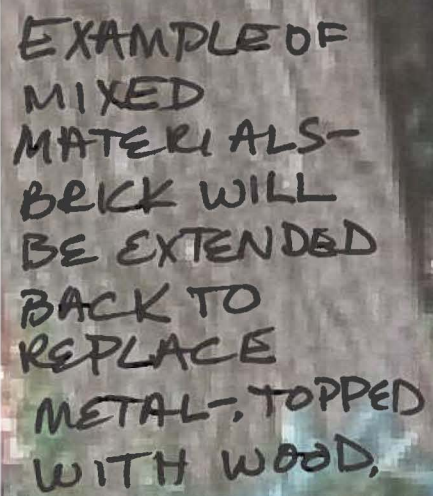 EXAMPLE OF
MIXED
MATERIALS-
BRICK WILL
BE EXTENDED
BACK TO
REPLACE
METAL-, TOPPED
WITH WOOD.